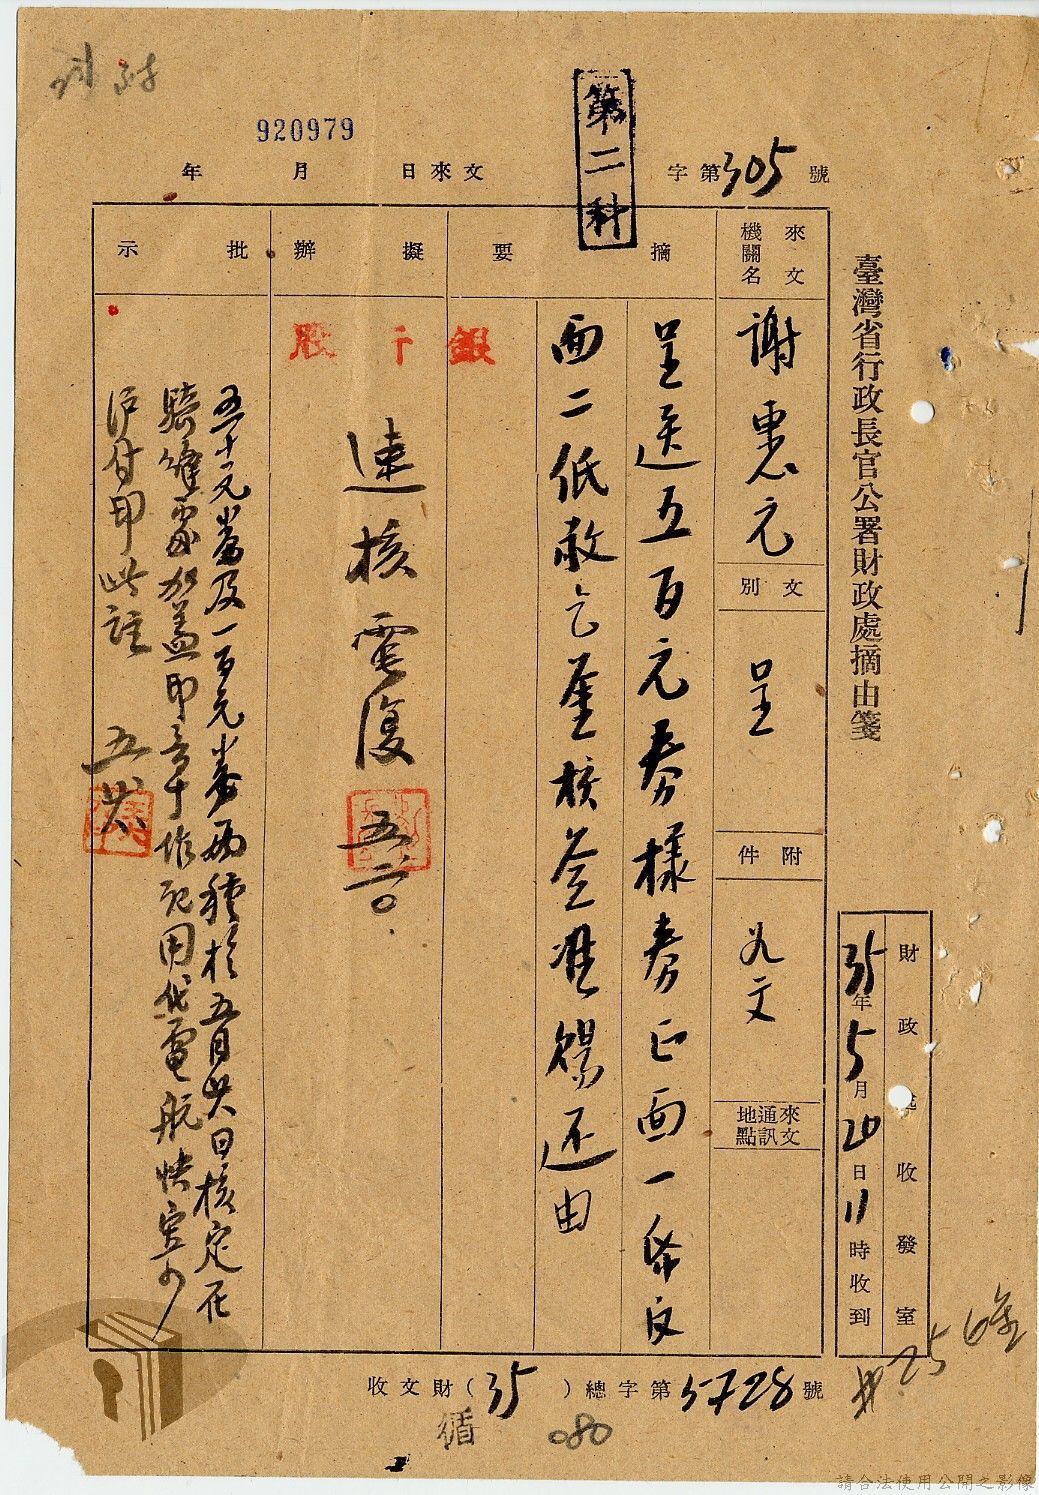 臺灣省行政長官公署財政處摘由箋
財政處收發室
35年5月20日11時收到
920979
年 月 日來文
字第305號
第二科
來文機關名
謝惠元
文別
呈
附件
九文
來文通訊地點
摘要
呈送五百元券樣券正面一紙反
面二紙敬乞鑒核簽准賜还由
擬辦
銀行股
速核電復 五二〇
批示
五十元券及一百元券兩種於五月廿八日核定在
騎縫處加蓋印章作配用代電航快寄
沪付印此註 五廿八
收文財(35)總字第5728號
循
080
請合法使用公開之影像